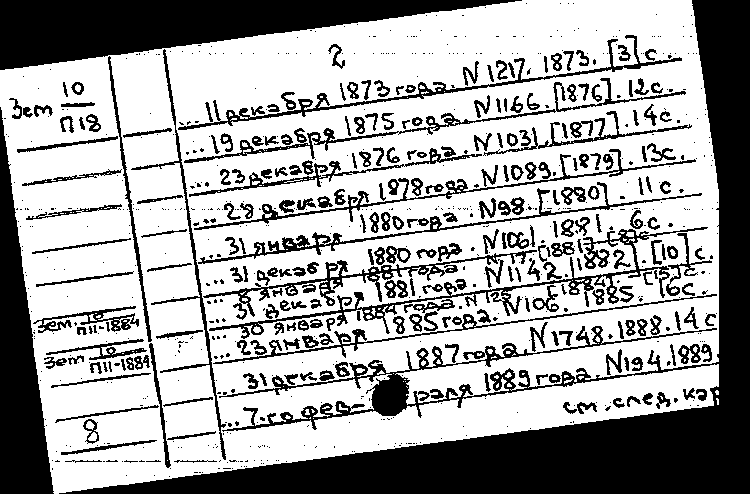 2
Зем 10/П18
... 11 декабря 1873 года. N 1217. 1873. [3] с.
... 19 декабря 1875 года. N 1166. [1876]. 12 с.
... 23 декабря 1876 года. N 1031. [1877]. 14 с.
... 28 декабря 1878 года. N 1089. [1879]. 13 с.
... 31 января 1880 года. N 98. [1880]. 11 с.
... 31 декабря 1880 года. N 1061. 1881. 6 с.
... 8 января 1881 года. N 17. [1881].
... 31 декабря 1881 года. N 1142. [1882]. [10] с.
Зем 10/П11-1884
... 30 января 1884 года. N 128. [1884]. [15] с.
Зем 10/П11-1884
... 23 января 1885 года. N 106. 1885. 16 с.
... 31 декабря 1887 года. N 1748. 1888. 14 с
... 7-го фев- раля 1889 года. N 194. 1889.
8
см. след. кар